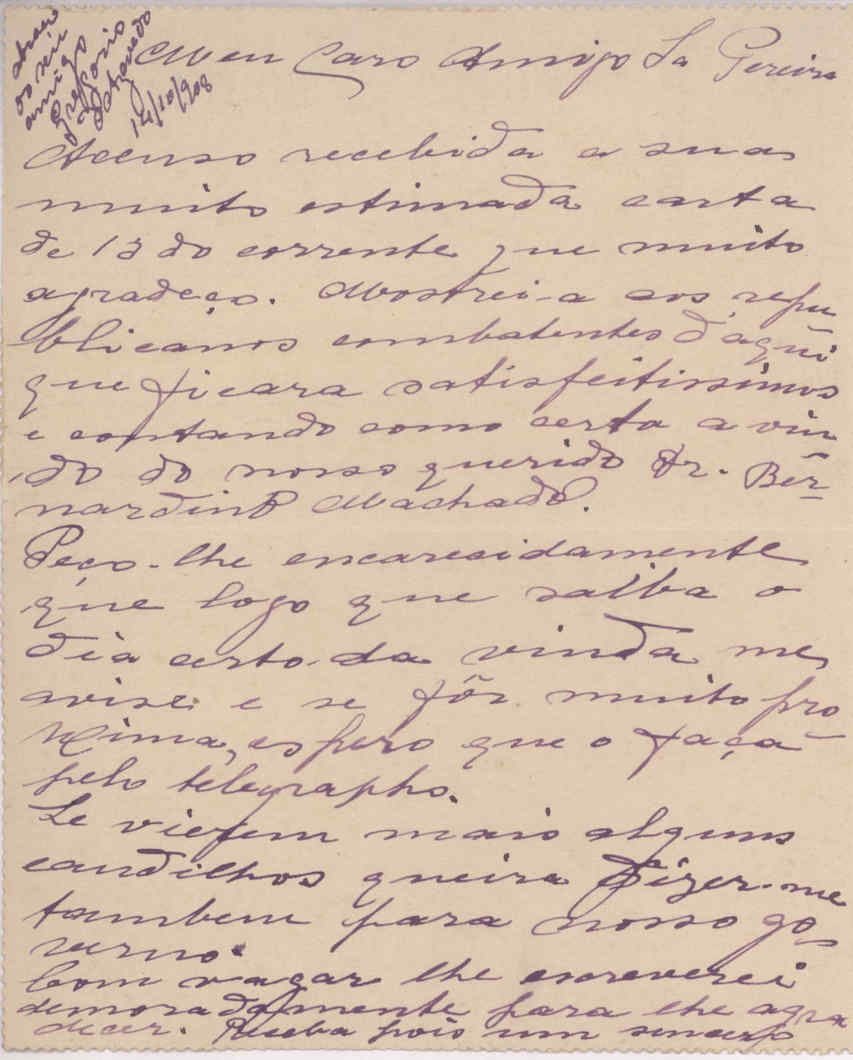 Meu Caro Amigo Sá Pereira
Acuso recebida a sua
muito estimada carta
de 13 do corrente que muito
agradeço. Mostrei-a aos repu
blicanos combatentes d'aqui
que ficara satisfeitissimos
e contando como certa a vin
do do nosso querido Dr. Ber-
nardino Machado.
Peço-lhe encarecidamente
que logo que saiba o
dia certo da vinda me
avise e se fôr muito pro
xima, espero que o faça
pelo telegrapho.
Se vierem mais alguns
caudilhos queira dizer-me
tambem para nosso go-
verno.
Com vagar lhe escreverei
demoradamente para lhe agra
decer. Receba pois um sincero
ao seu
amigo
Gregorio
d'Azevedo
14/10/908